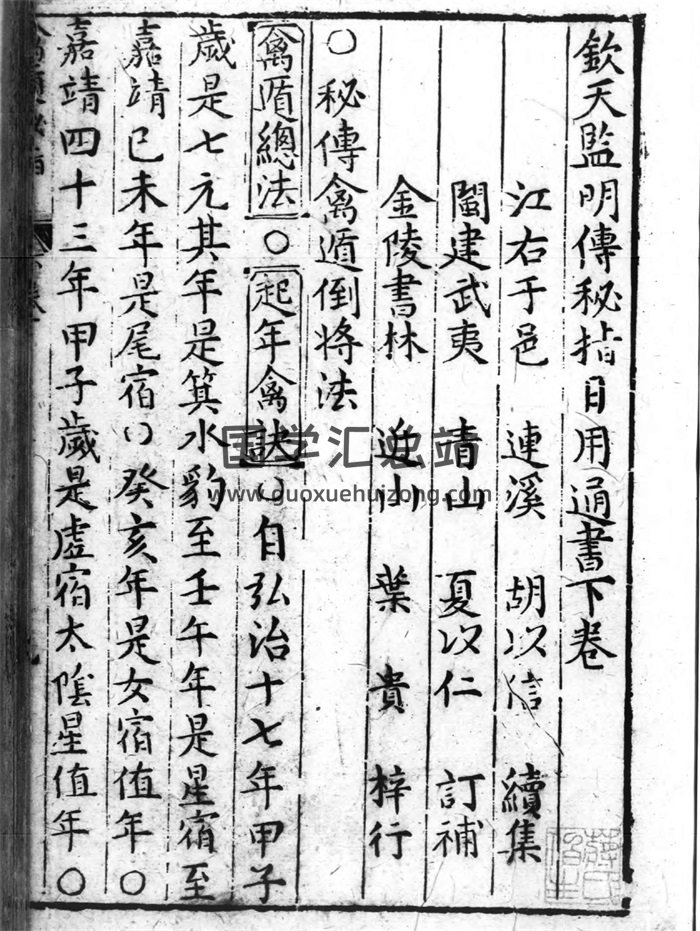 欽天監明傳秘指日用通書下卷
江右于邑　連溪　胡以信　續集
閩建武夷　青山　夏以仁　訂補
金陵書林　近山　葉貴　梓行
○秘傳禽遁倒將法
禽遁總法○起年禽訣○自弘治十七年甲子
歲是七元其年是箕水豹至壬午年是星宿至
嘉靖己未年是尾宿○癸亥年是女宿值年○
嘉靖四十三年甲子歲是虛宿太陰星值年○
国学汇总站
www.guoxuehuizong.com